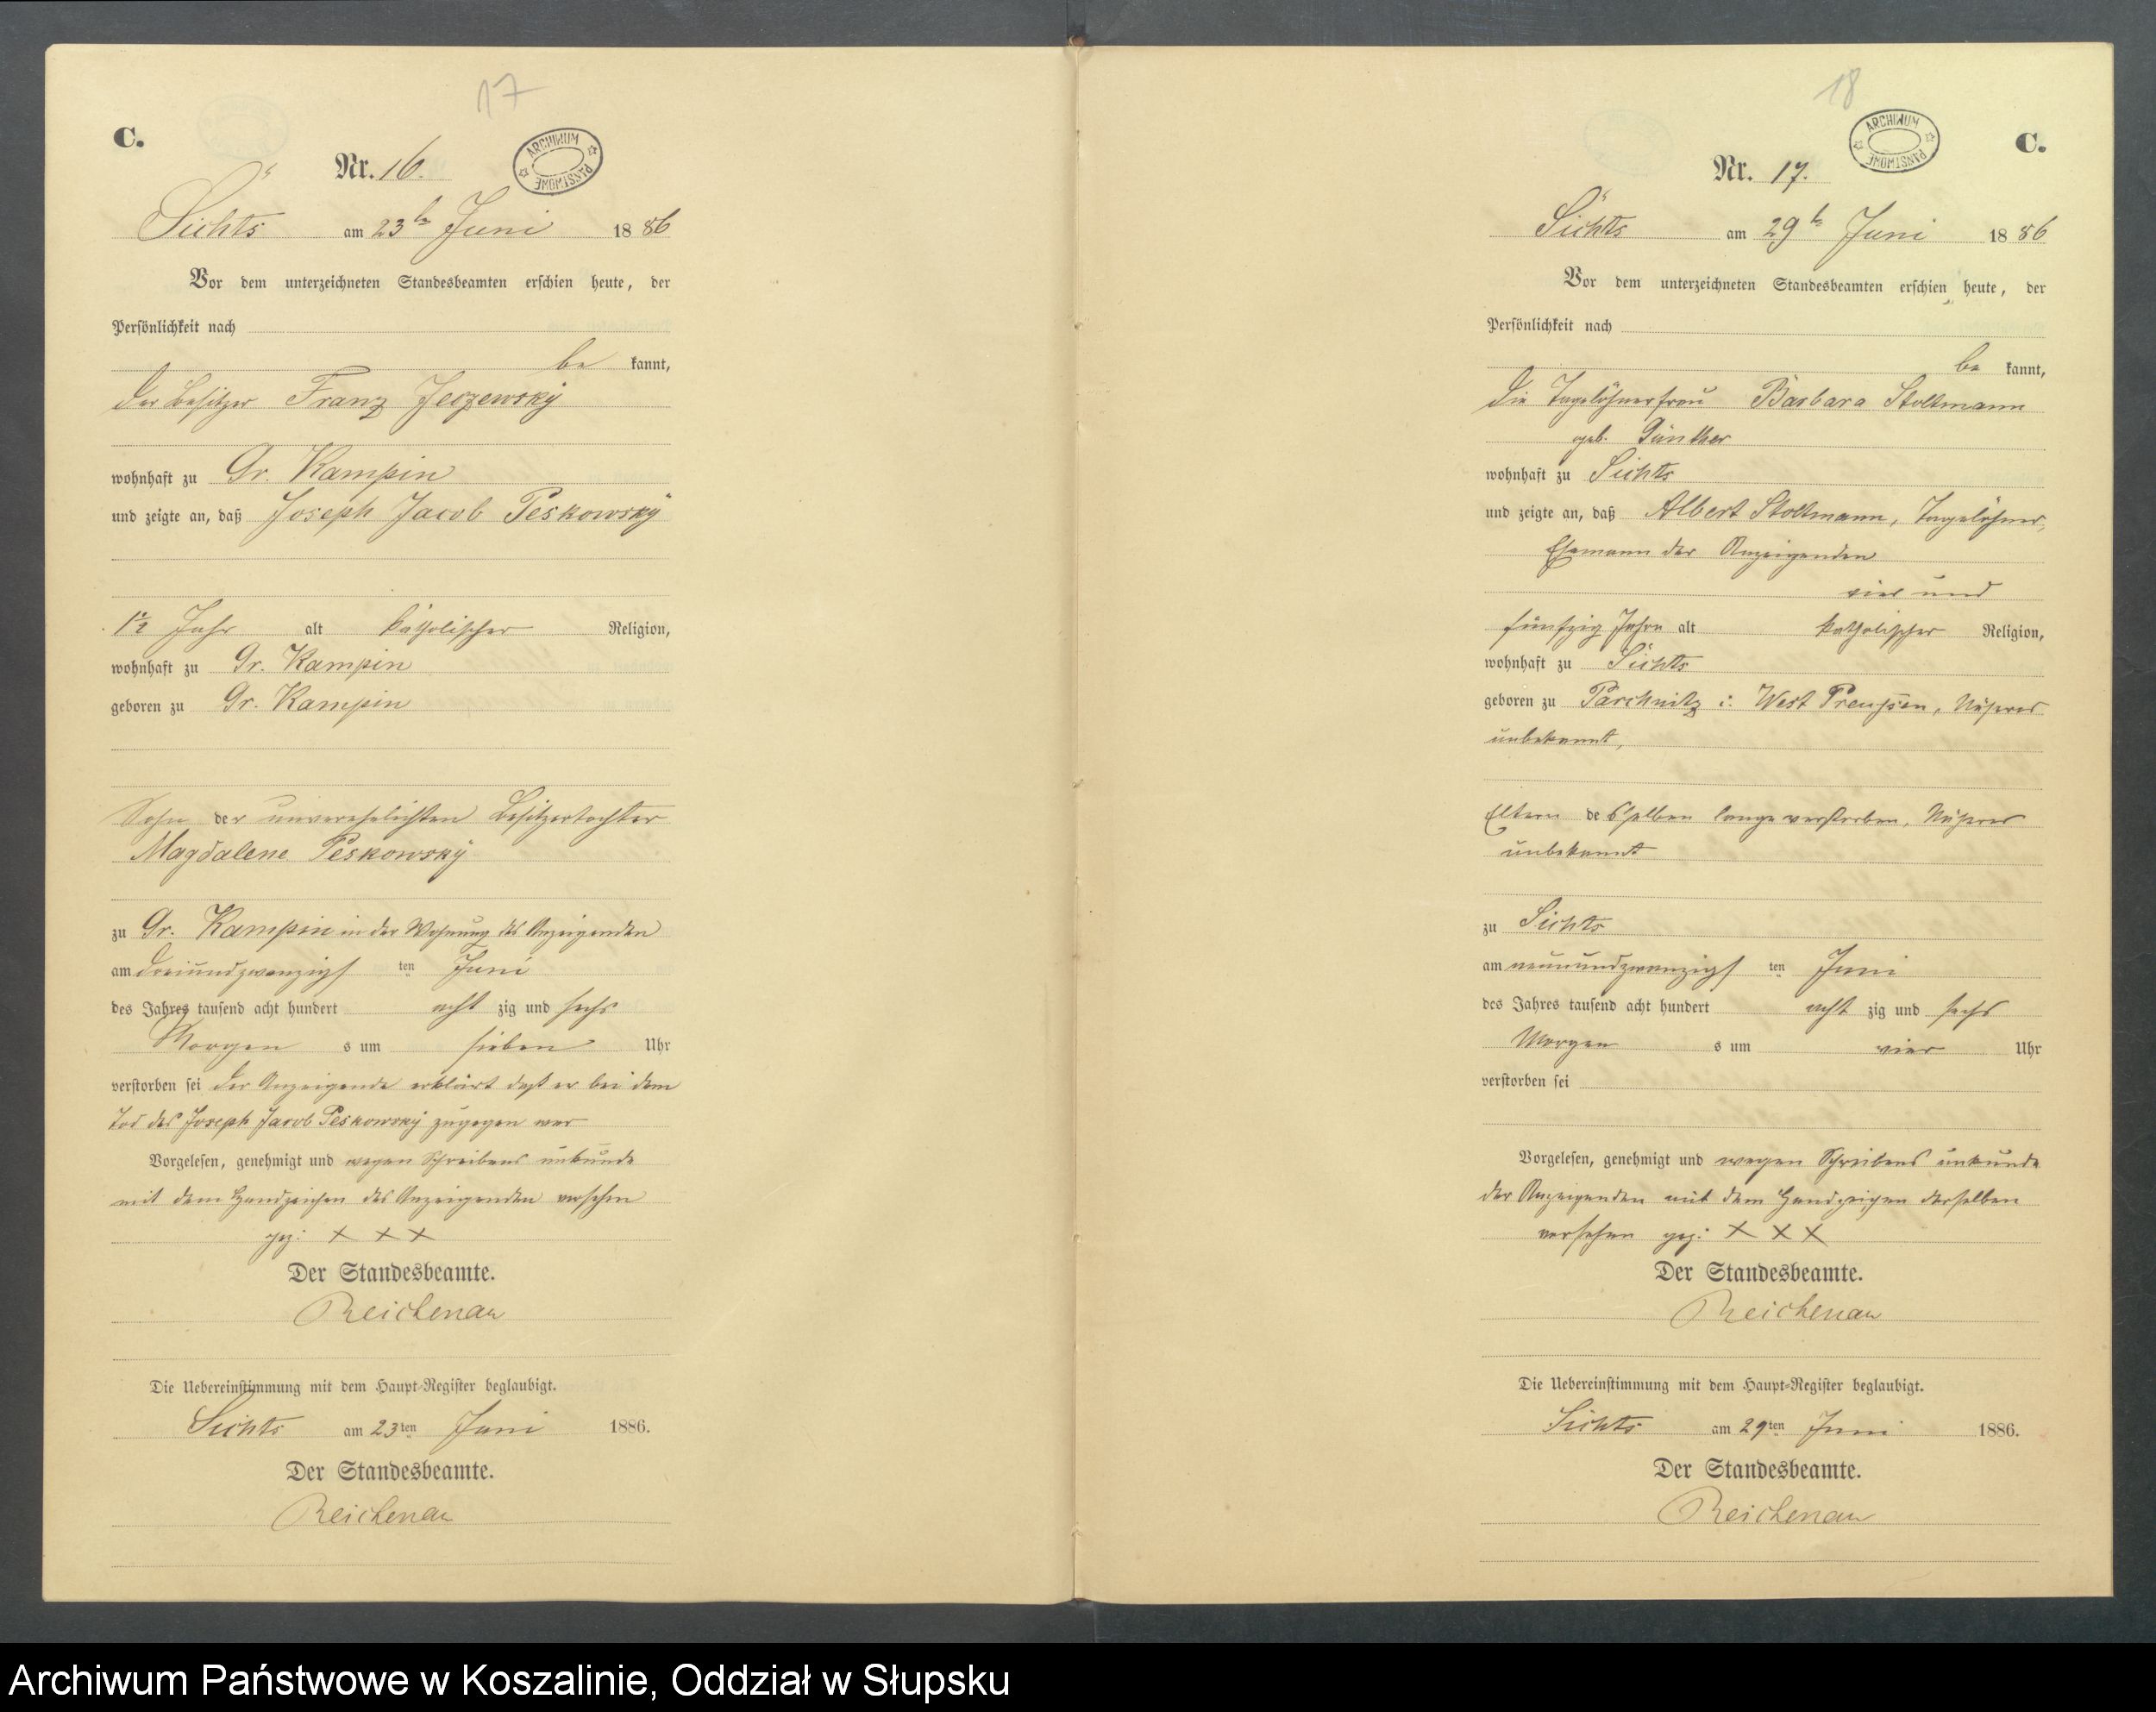 17
C.
Nr. 16.
ARCHIWUM PAŃSTWOWE
Süchts am 23ten Juni 1886
Vor dem unterzeichneten Standesbeamten erschien heute, der
Persönlichkeit nach
be kannt,
der Besitzer Franz Jeczewsky
wohnhaft zu Gr. Kampin
und zeigte an, daß Joseph Jacob Peskowsky
1½ Jahr alt katholischer Religion,
wohnhaft zu Gr. Kampin
geboren zu Gr. Kampin
Sohn der unverehelichten Besitzertochter
Magdalene Peskowsky
zu Gr. Kampin in der Wohnung des Anzeigenden
am dreiundzwanzigsten Juni
des Jahres tausend acht hundert acht zig und sechs
Morgen s um sieben Uhr
verstorben sei der Anzeigende erklärt daß er bei dem
Tod des Joseph Jacob Peskowsky zugegen war
Vorgelesen, genehmigt und wegen Schreibens unkunde
mit dem Handzeichen des Anzeigenden versehen
gez: X X X
Der Standesbeamte.
Reichenau
Die Uebereinstimmung mit dem Haupt-Register beglaubigt.
Süchts am 23ten Juni 1886.
Der Standesbeamte.
Reichenau
18
C.
Nr. 17.
ARCHIWUM PAŃSTWOWE
Süchts am 29ten Juni 1886
Vor dem unterzeichneten Standesbeamten erschien heute, der
Persönlichkeit nach
be kannt,
die Tagelöhnerfrau Barbara Stoltmann
geb. Günther
wohnhaft zu Süchts
und zeigte an, daß Albert Stoltmann, Tagelöhner,
Ehemann der Anzeigenden
vier und
fünfzig Jahre alt katholischer Religion,
wohnhaft zu Süchts
geboren zu Parchnitz i. West Preußen, Näheres
unbekannt,
Eltern desselben lange verstorben, Näheres
unbekannt
zu Süchts
am neunundzwanzigsten Juni
des Jahres tausend acht hundert acht zig und sechs
Morgen s um vier Uhr
verstorben sei
Vorgelesen, genehmigt und wegen Schreibens unkunde
der Anzeigenden mit dem Handzeichen derselben
versehen gez: X X X
Der Standesbeamte.
Reichenau
Die Uebereinstimmung mit dem Haupt-Register beglaubigt.
Süchts am 29ten Juni 1886.
Der Standesbeamte.
Reichenau
Archiwum Państwowe w Koszalinie, Oddział w Słupsku